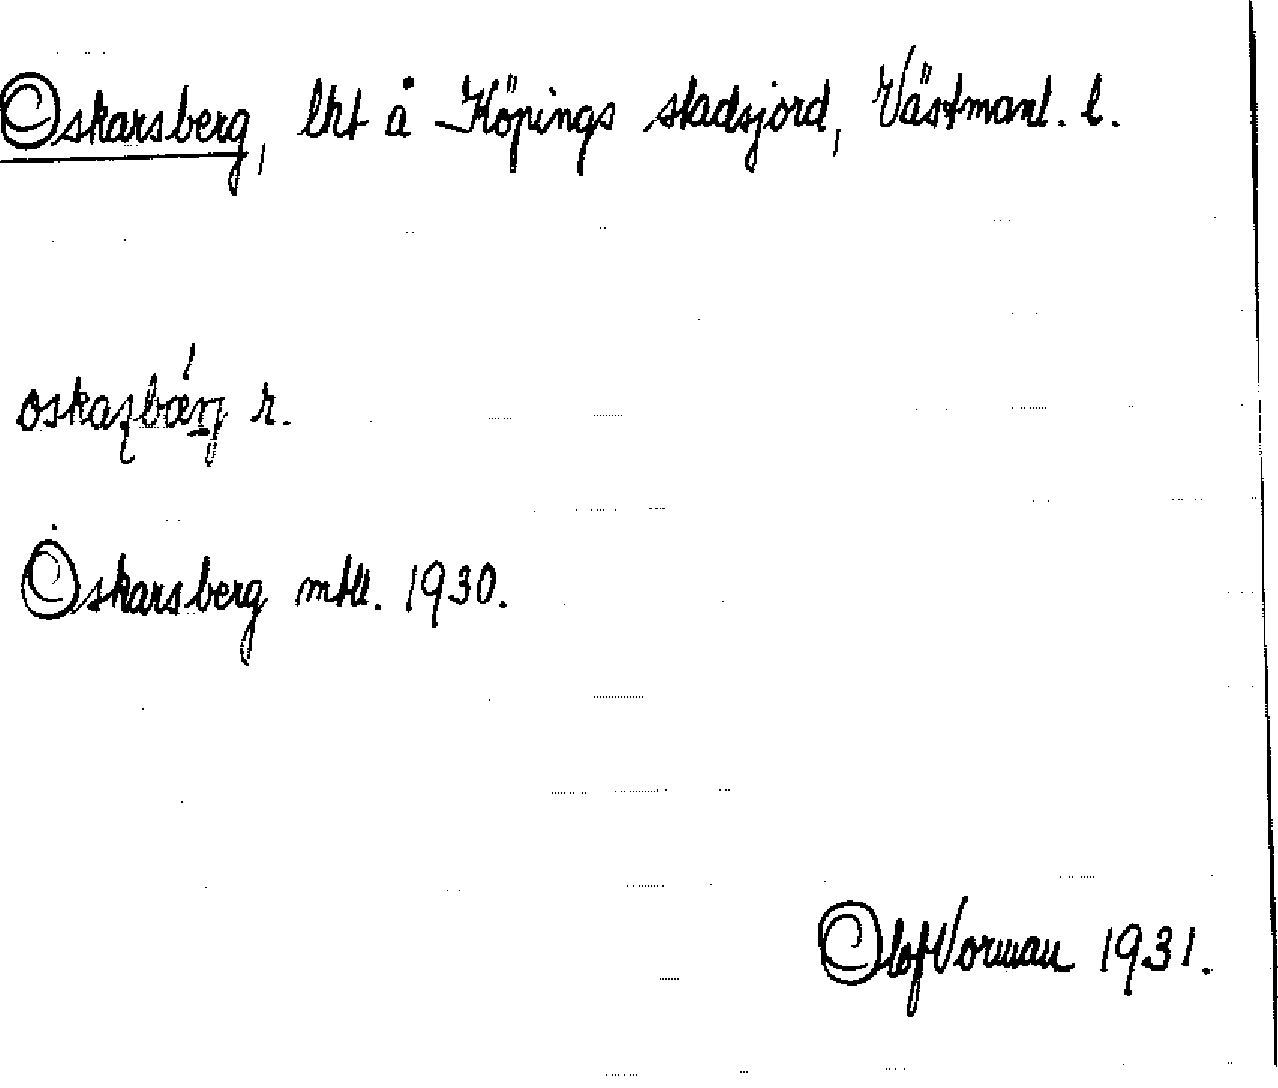 Oskarsberg, lht å Köpings stadsjord, Västmanl. l.
oskaʂbærj r.
Oskarsberg mtll. 1930.
Olof Vorman 1931.